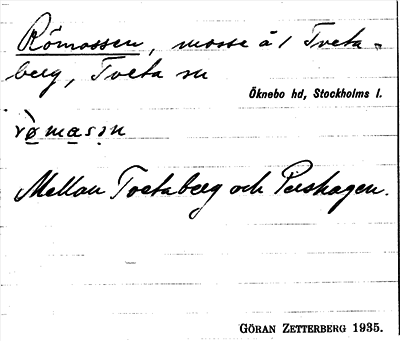 Römossen, mosse å 1 Tveta-
berg, Tveta sn
Öknebo hd, Stockholms l.
rø̀masn̥
Mellan Tvetaberg och Pershagen.
GÖRAN ZETTERBERG 1935.